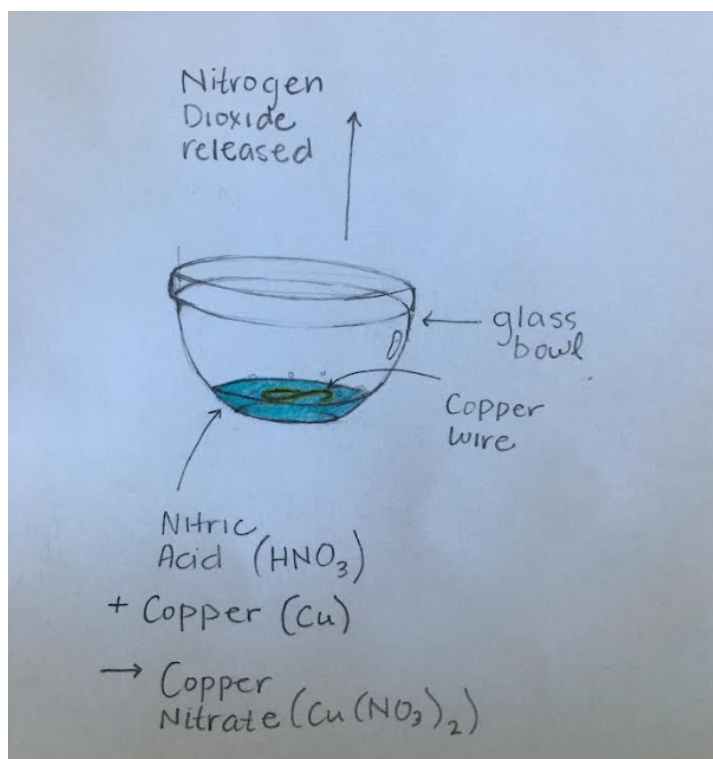 Nitrogen
Dioxide
released
glass
bowl
Copper
wire
Nitric
Acid (HNO₃)
+ Copper (Cu)
→ Copper
Nitrate (Cu(NO₃)₂)